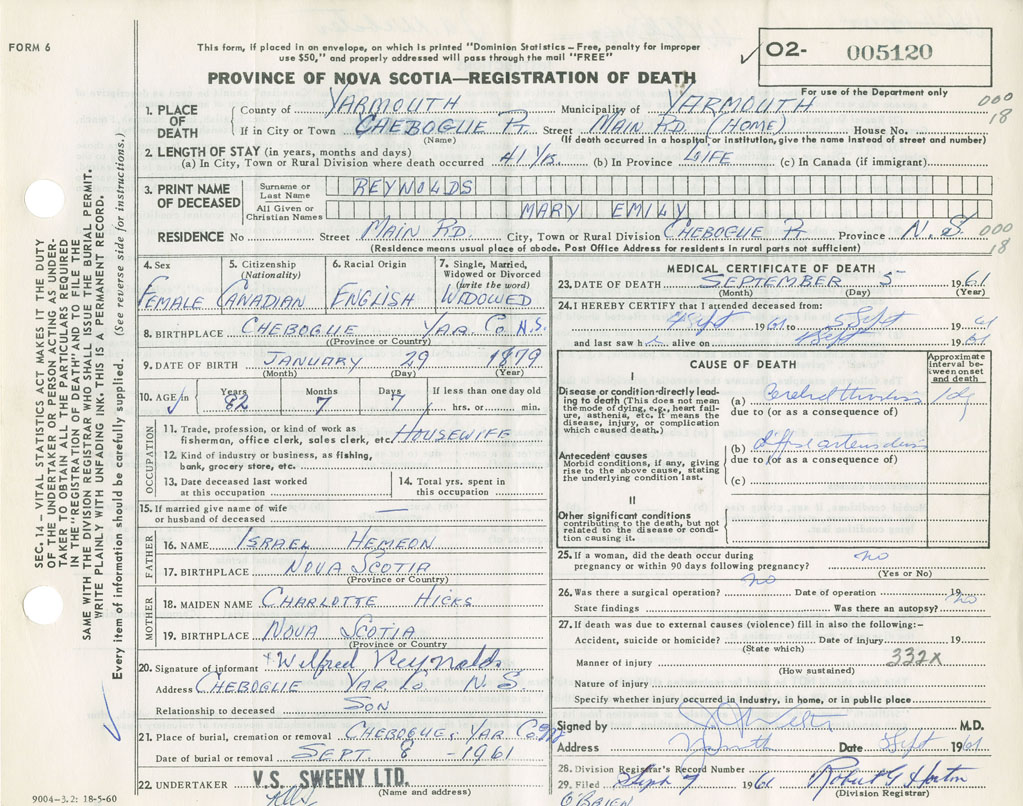 FORM 6
This form, if placed in an envelope, on which is printed "Dominion Statistics – Free, penalty for improper
use $50," and properly addressed will pass through the mail "FREE"
O2- 005120
For use of the Department only
PROVINCE OF NOVA SCOTIA—REGISTRATION OF DEATH
000
18
1. PLACE OF DEATH County of YARMOUTH Municipality of YARMOUTH
If in City or Town CHEBOGUE PT. Street MAIN RD. (HOME) House No.
(Name) (If death occurred in a hospital or institution, give the name instead of street and number)
2. LENGTH OF STAY (in years, months and days)
(a) In City, Town or Rural Division where death occurred 41 Yrs. (b) In Province LIFE (c) In Canada (if immigrant)
3. PRINT NAME OF DECEASED Surname or Last Name REYNOLDS
All Given or Christian Names MARY EMILY
RESIDENCE No Street MAIN RD. City, Town or Rural Division CHEBOGUE PT. Province N.S. 000
18
(Residence means usual place of abode. Post Office Address for residents in rural parts not sufficient)
4. Sex FEMALE
5. Citizenship (Nationality) CANADIAN
6. Racial Origin ENGLISH
7. Single, Married, Widowed or Divorced (write the word) WIDOWED
8. BIRTHPLACE CHEBOGUE YAR. Co. N.S.
(Province or Country)
9. DATE OF BIRTH JANUARY 29 1879
(Month) (Day) (Year)
10. AGE in Years 82 Months 7 Days 7 If less than one day old
hrs. or min.
OCCUPATION
11. Trade, profession, or kind of work as
fisherman, office clerk, sales clerk, etc. HOUSEWIFE
12. Kind of industry or business, as fishing,
bank, grocery store, etc.
13. Date deceased last worked
at this occupation
14. Total yrs. spent in
this occupation
15. If married give name of wife
or husband of deceased —
FATHER
16. NAME ISRAEL HEMEON
17. BIRTHPLACE NOVA SCOTIA
(Province or Country)
MOTHER
18. MAIDEN NAME CHARLOTTE HICKS
19. BIRTHPLACE NOVA SCOTIA
(Province or Country
20. Signature of informant Wilfred Reynolds
Address CHEBOGUE YAR. Co. N.S.
Relationship to deceased SON
21. Place of burial, cremation or removal CHEBOGUE, YAR. Co.
Date of burial or removal SEPT. 8 - 1961
22. UNDERTAKER V.S. SWEENY LTD.
(Name and address)
9004–3.2: 18-5-60
MEDICAL CERTIFICATE OF DEATH
23. DATE OF DEATH SEPTEMBER 5 1961
(Month) (Day) (Year)
24. I HEREBY CERTIFY that I attended deceased from:
4 Sept 1961 to 5 Sept 1961
and last saw h alive on Sept 1961
CAUSE OF DEATH
Approximate interval between onset and death
I
Disease or condition directly leading to death (This does not mean the mode of dying, e.g., heart failure, asthenia, etc. It means the disease, injury, or complication which caused death.)
(a) Cerebral thrombosis
due to (or as a consequence of)
Antecedent causes
Morbid conditions, if any, giving rise to the above cause, stating the underlying condition last.
(b)
due to (or as a consequence of)
(c)
II
Other significant conditions
contributing to the death, but not related to the disease or condition causing it.
25. If a woman, did the death occur during
pregnancy or within 90 days following pregnancy? no
(Yes or No)
26. Was there a surgical operation? no Date of operation 19
State findings Was there an autopsy? no
27. If death was due to external causes (violence) fill in also the following:–
Accident, suicide or homicide? Date of injury 19
(State which)
Manner of injury 332X
(How sustained)
Nature of injury
Specify whether injury occurred in industry, in home, or in public place
Signed by M.D.
Address Yarmouth Date Sept 1961
28. Division Registrar's Record Number
29. Filed Sept 7 1961 Robert G Horton
(Division Registrar)
O'BRIEN
SEC. 14 – VITAL STATISTICS ACT MAKES IT THE DUTY
OF THE UNDERTAKER OR PERSON ACTING AS UNDER-
TAKER TO OBTAIN ALL THE PARTICULARS REQUIRED
IN THE "REGISTRATION OF DEATH" AND TO FILE THE
SAME WITH THE DIVISION REGISTRAR WHO SHALL ISSUE THE BURIAL PERMIT.
WRITE PLAINLY WITH UNFADING INK. THIS IS A PERMANENT RECORD.
Every item of information should be carefully supplied. (See reverse side for instructions.)